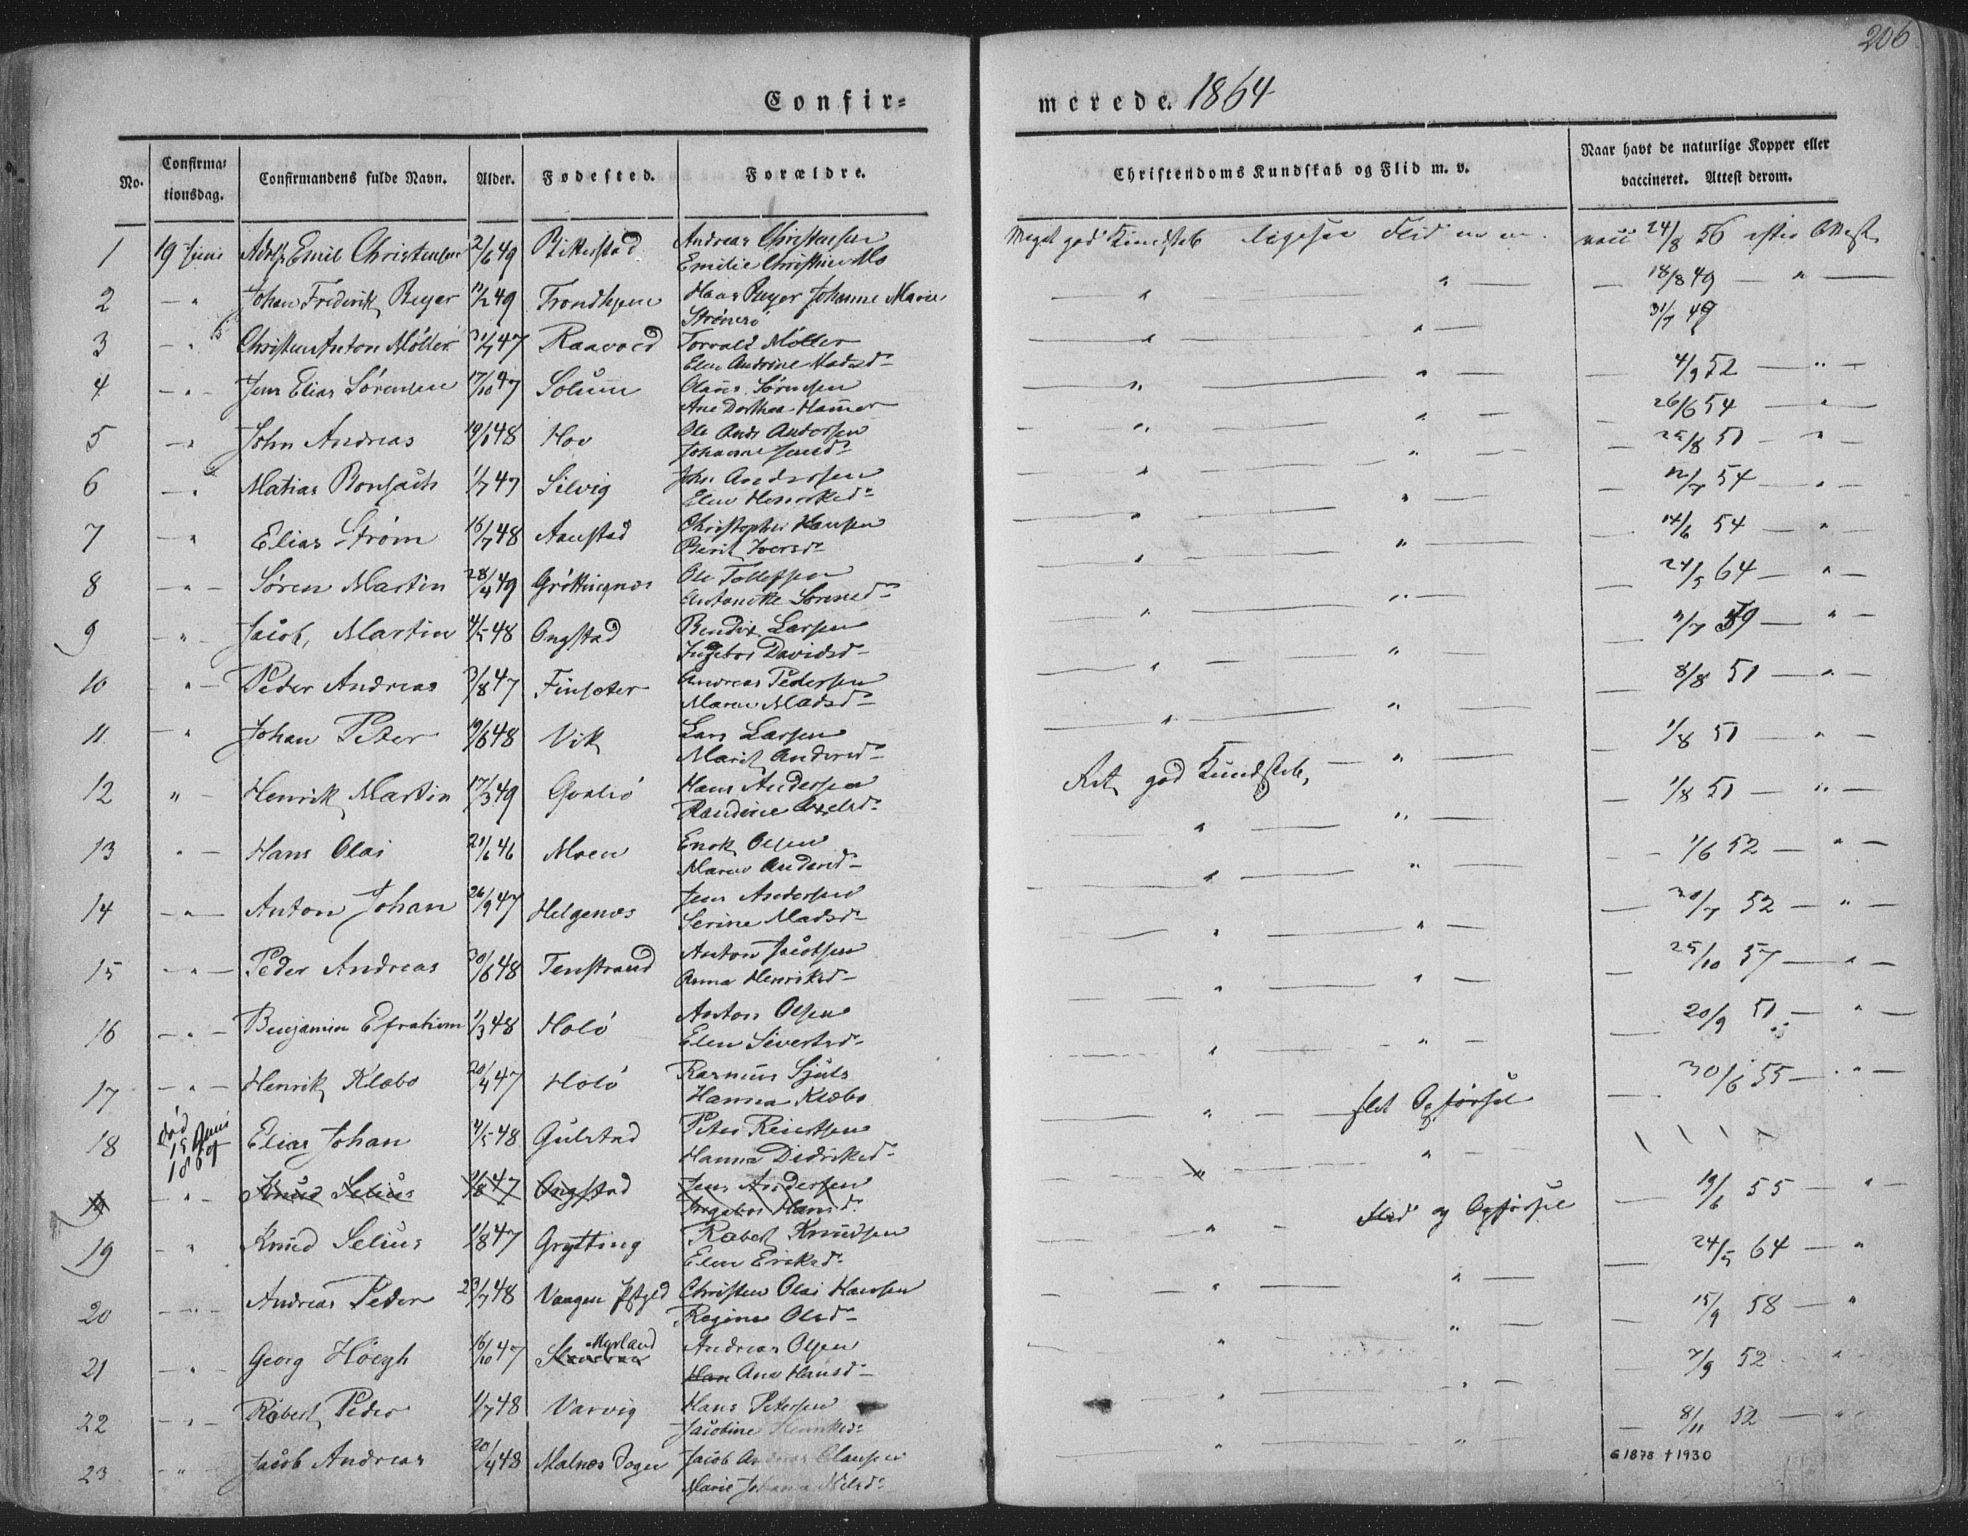 206
Confir=
merede. 1864
No.
Confirma=
tionsdag.
Confirmandens fulde Navn.
Alder.
Fødested.
Forældre.
Christendoms Kundskab og Flid m. v.
Naar havt de naturlige Kopper eller
vaccineret. Attest derom.
1 19 Juni Adolf Emil Christensen 2/6 49 Bitterstad Andreas Christensen
Emilie Christine Mo
Meget god Kundskab ligesaa Flid vacc 24/8 56 efter Attest
2 — " Johan Frederik Beyer 11/2 49 Trondhjem Hans Beyer Johanne Marie
18/8 49 — " —
3 — " Christen Anton Möller 47 Torvald Möller
Elen Andrine Madsd.
31/7 49
4 — " — Jens Elias Sörensen 17/10 47 Solum Olaus Sörensen
Ane Dorthea Hamer
4/9 52 — " —
5 — " John Andreas 19/1 48 Hov Ole Andr Andersen
Johanne Jensd.
26/6 54 — " —
6 — " Matias Bonsach 1/7 47 Selvig John Andersen
Elen Henrikd.
25/8 51 — " —
7 — " Elias Strøm 16/7 48 Aanstad Christopher Hansen
Berit Iversd.
12/7 54 — " —
14/6 54 — "
8 — " — Sören Martin 28/4 49 Gröttingnæs Ole Tollefsen
Antonette Sörensd.
24/5 64 — " —
9 — " Jacob Martin 4/5 48 Ongstad Bendix Larsen
Ingebor Davidsd.
10 — " — Peder Andreas 3/8 47 Finsæter Andreas Pedersen
Maren Madsd.
8/8 51 — " —
11 — " Johan Peter 19/6 48 Vik Lars Larsen
Marit Andersd.
1/8 51 — " —
12 " — Henrik Martin 17/3 49 Hans Andersen
Randine Axelsd.
Ret god Kundskab,
1/8 51 — " —
13 " — Hans Olai 21/6 46 Moen Enok Olsen
Maren Andersd.
1/6 52 — " —
14 — " — Anton Johan 26/9 47 Helgenæs Jens Andersen
Serine Madsd.
20/7 52 — " —
15 — " — Peder Andreas 20/6 48 Tenstrand Anton Jacobsen
Anna Henriksd.
25/10 57 — " —
16 — " — Benjamin Efraium 11/3 48 Holö Anton Olsen
Elen Sivertsd.
20/9 51 — " —
17 — " — Henrik Klæbo 20/4 47 Holö Rasmus Sjuls
Hanna Klæbo
slet Opførsel
30/6 55 — " —
18 død
15 Juni
Elias Johan 4/5 48 Gulstad Peter Reinertsen
Hanna Didriksd.
19 — " — Knud Selius 47 Ongstad Jens Andersen
Ingebor Hansd.
19/6 55 — " —
19 " Knud Selius 1/8 47 Grytting Robert Knudsen
Elen Eriksd.
Flid og Opførsel
24/5 64 — "
20 — " — Andreas Peder 23/7 48 Vaagen Pstgld Christen Olai Hansen
Regine Olsd.
15/9 58 — "
21 — " — Georg Höegh 16/10 47 Myrland Andreas Olsen
Han Ana Hansd.
7/9 52 "
22 — " — Robert Peder 1/7 48 Varvig Hans Petersen
Jacobine Henriksd.
8/11 52 — " —
23 — " — Jacob Andreas 20/4 48 Malnæs Sogn Jacob Andreas Clausen
Marie Johanna Nilsd.
G 1878 † 1930